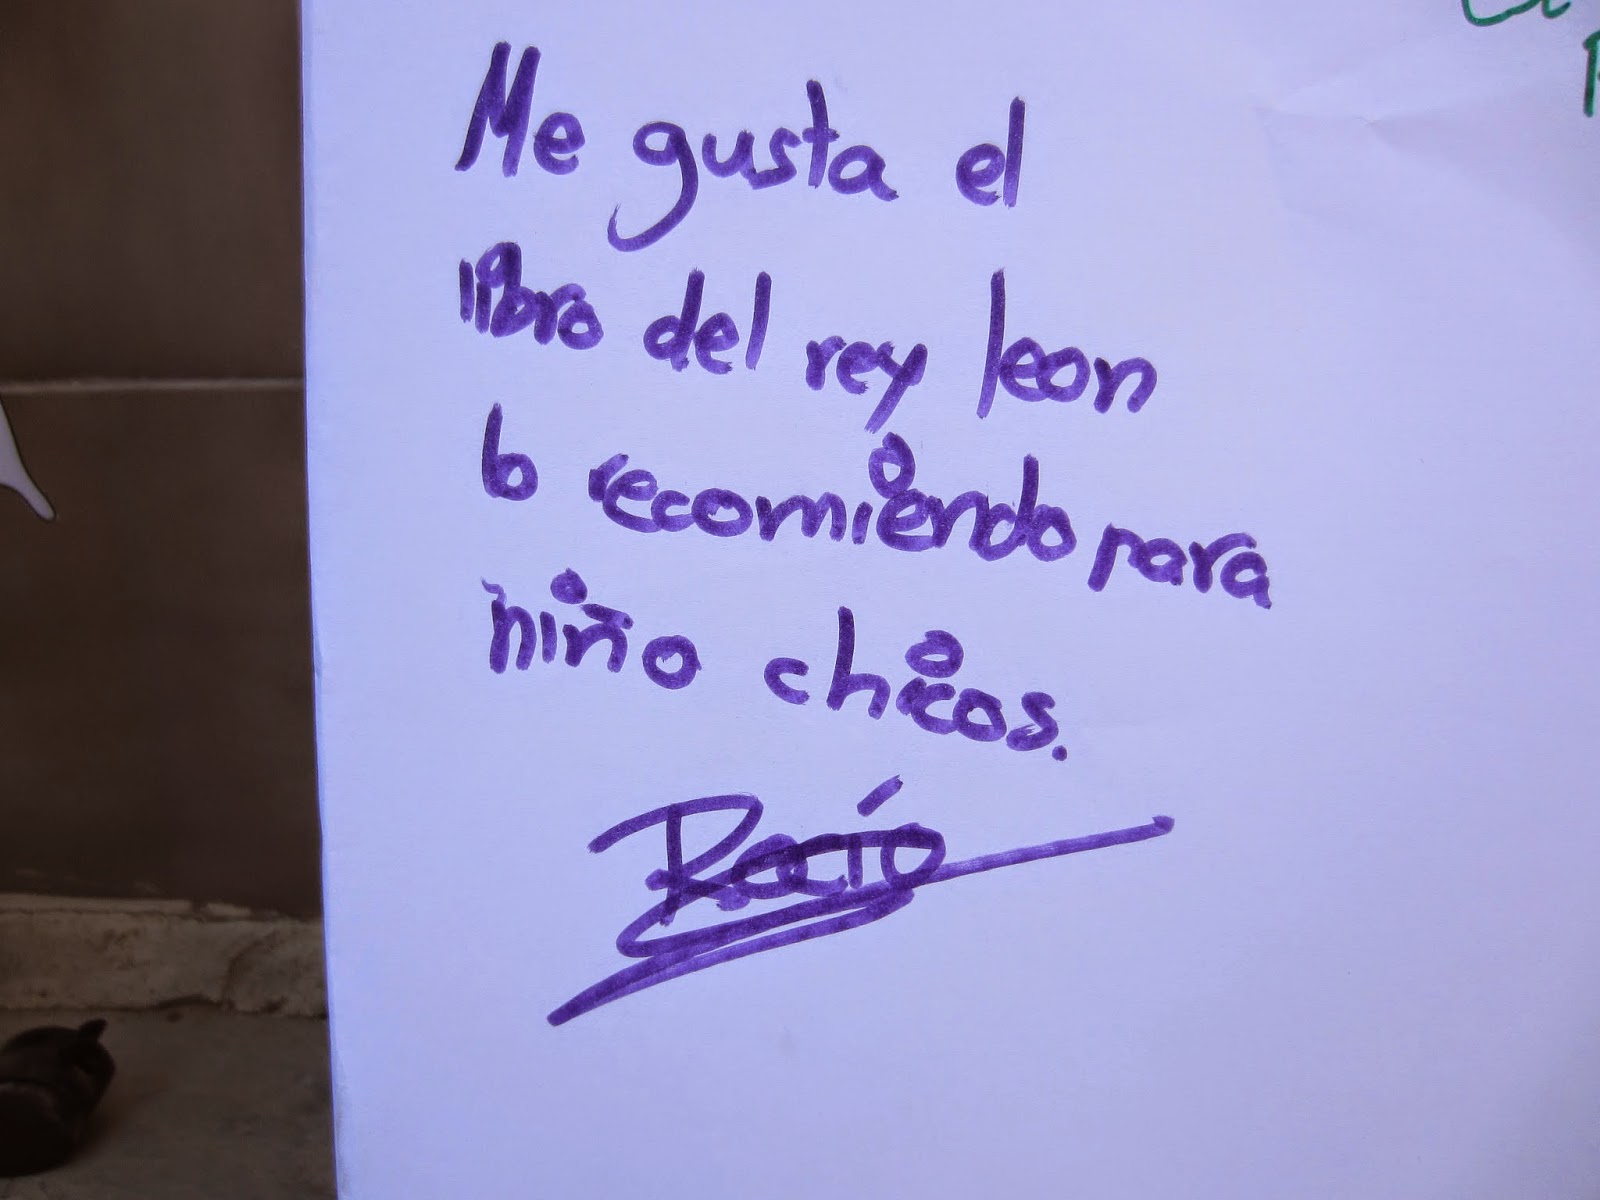 Me gusta el
libro del rey leon
lo recomiendo para
niño chicos.
Rocío